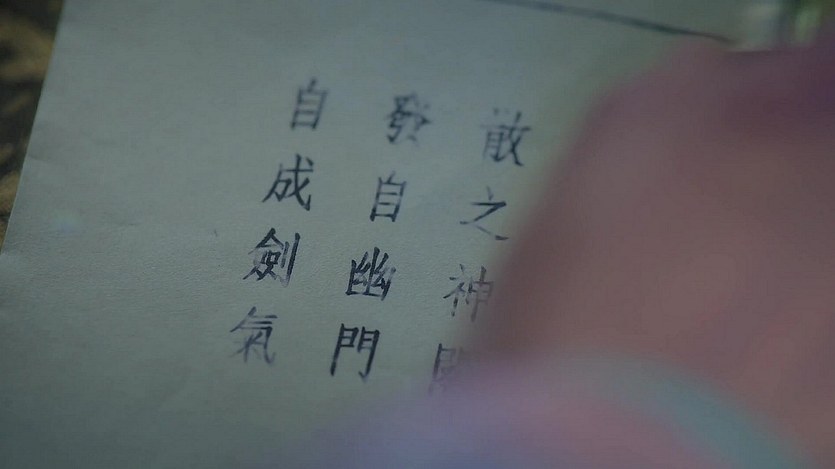 散之神
發自幽門
自成劍氣